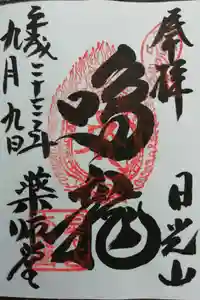 奉拝
日光山
鳴龍
平成二十二年
九月九日
薬師堂